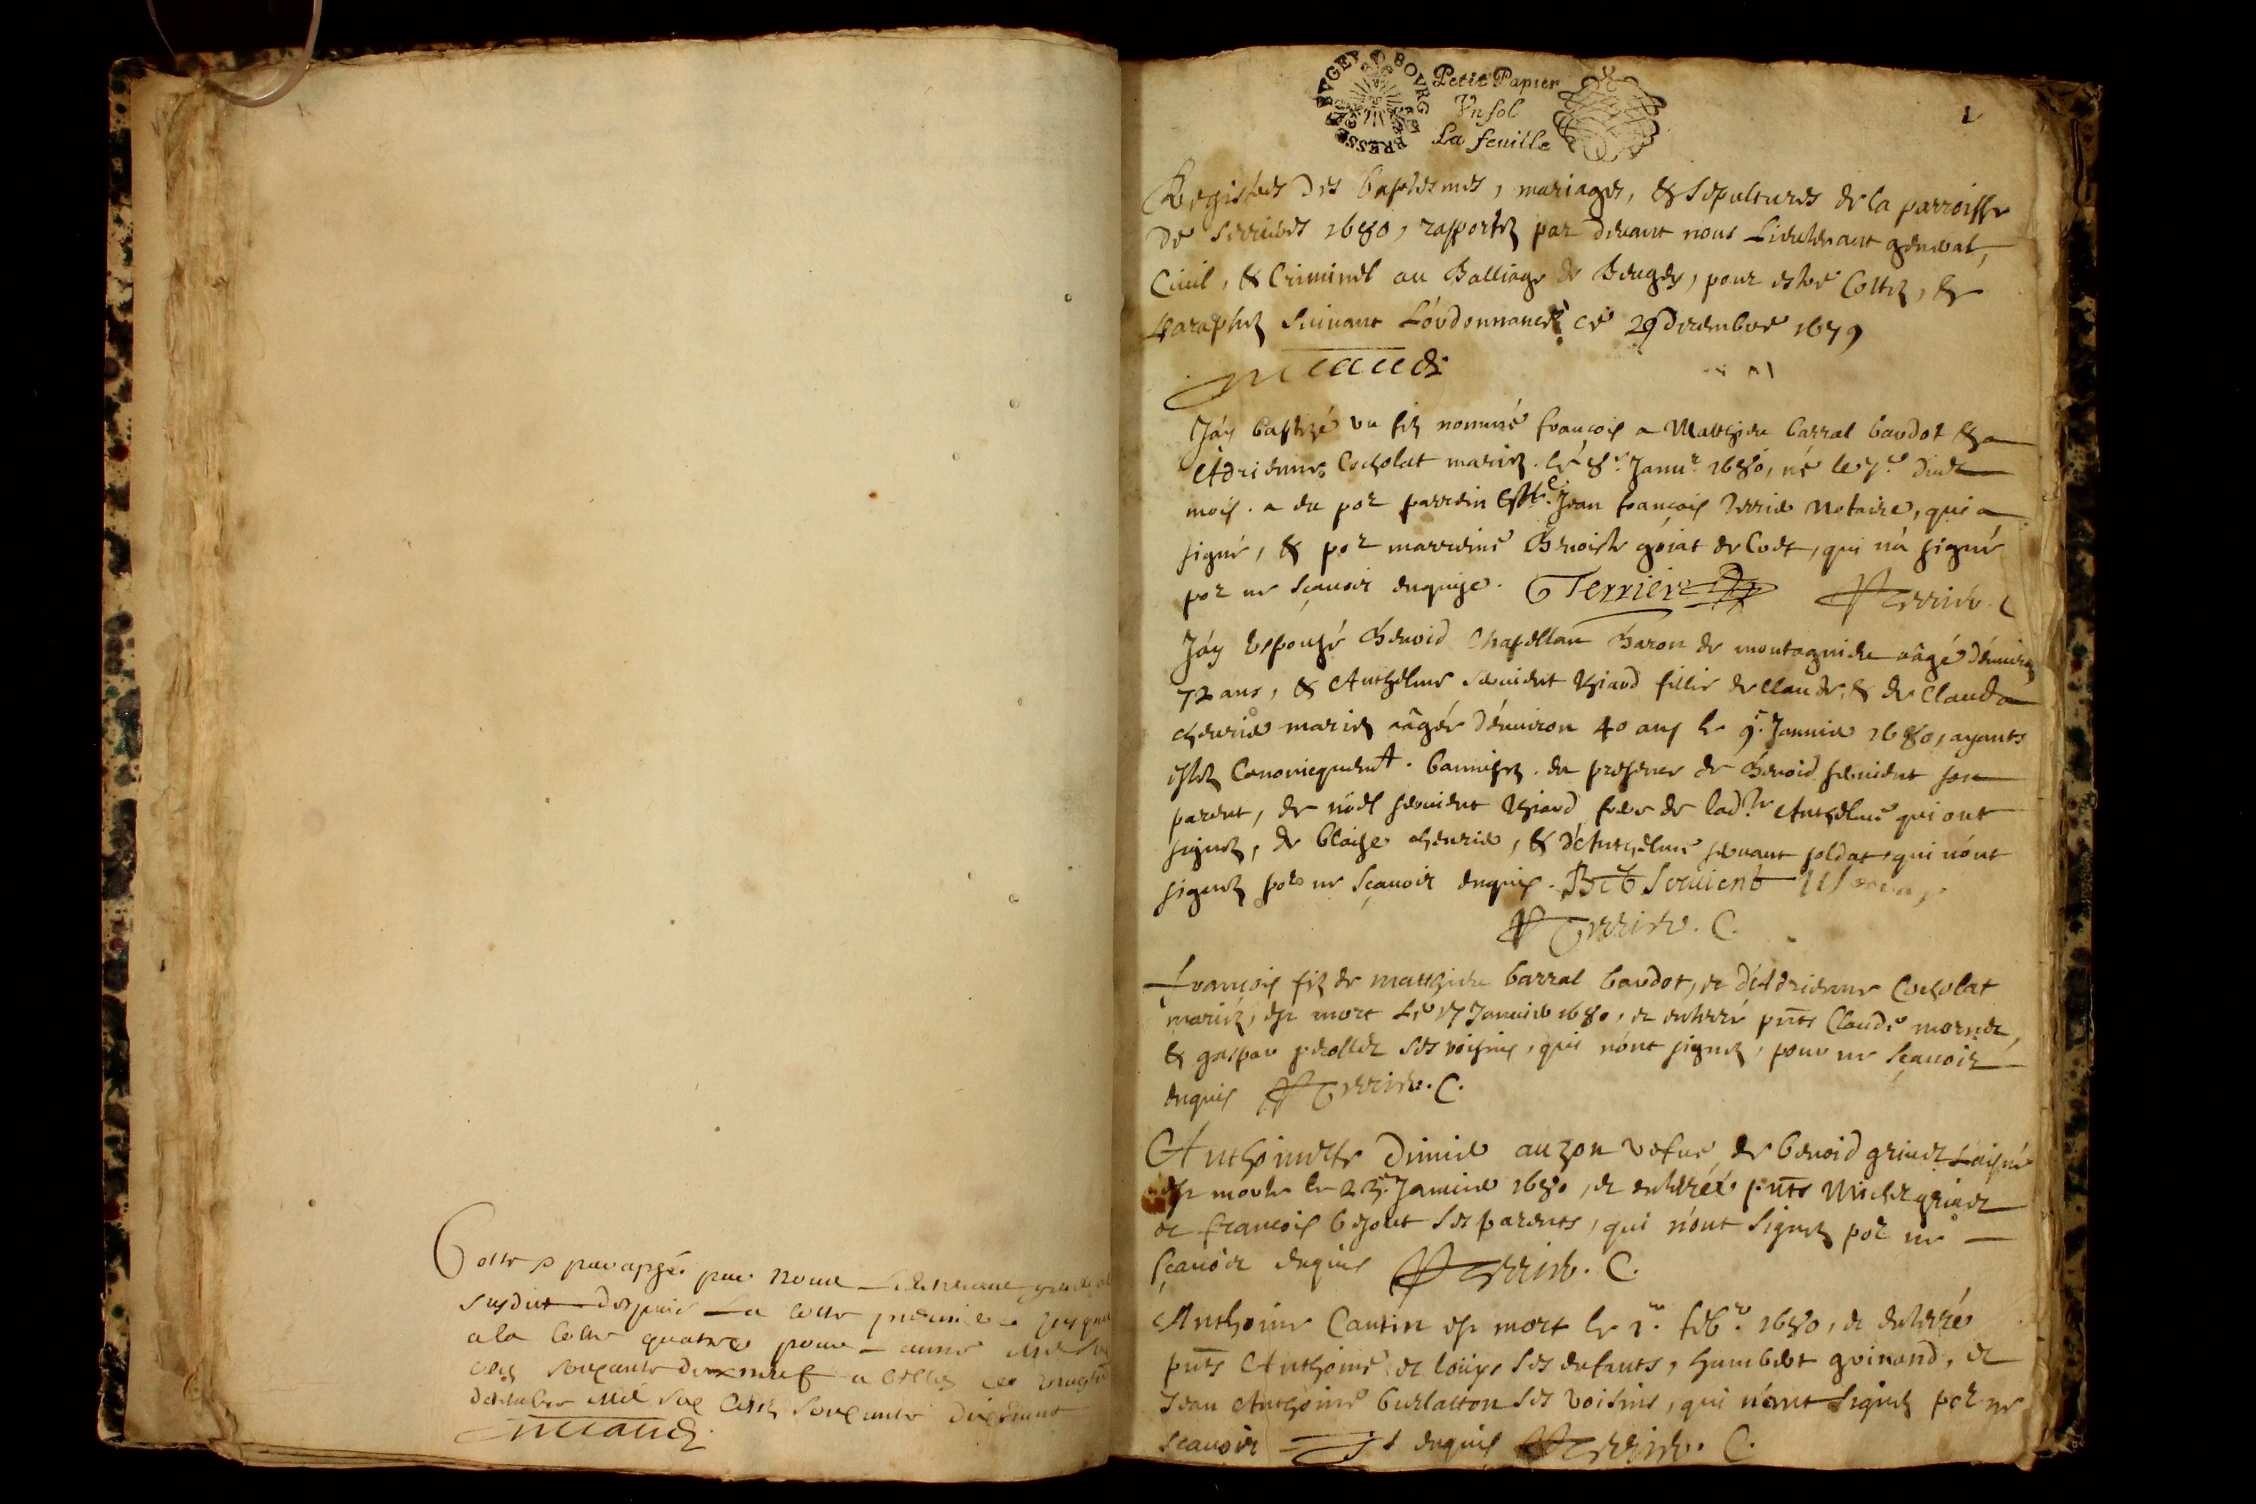 Cotté & paraphé par Nous Lieutenant general
susdict despuis La cotte premiere jusques
a la cotte quatre pour
soixante dix neuf a Belley ce vingt
decembre Mil six Cents soixante dix neuf
BOVRG EN BRESSE BVGEY
Petit Papier
Vn sol
La feuille
1
Registres des baptesmes, mariages, & sepultures de la parroisse
De Serrieres 1680, rapportez par devant nous Lieutenant general,
Civil, & Criminel au Balliage de Beugey, pour estre Cottez, &
Paraphez suivant L'ordonnance ce 29 decembre 1679
J'ay baptizé un filz nommé françois a Matthieu barral baudot & a
Adrienne Cocholat mariez. le 8e Janvr 1680, né le 7e dudt
mois. a eu por parrein Jean françois Terrier Notaire, qui a
signé, & por marreine Benoiste gojat de , qui n'a signé
por ne sçavoir enquise. Terrier Terrier. C
J'ay Espousé Benoid Chapellan Baron de montagnieu aâgé d'environ
72 ans, & Anthelme servient fillie de Claude, & de Clauda
chevrier mariez aâgée d'environ 40 ans le 9e Janvier 1680, ayants
estez Canonicquemt. bannisez. en presence de Benoid servient son
parent, de noel servient frere de ladte Anthelme qui ont
signez, de blaise chevrier, & d'Anthelme servant soldat, qui n'ont
signez por ne sçavoir enquis. Bt Servient
Terrier. C.
François filz de matthieu barral baudot, et d'Adrienne Cocholat
mariez, est mort Le 17 Janvier 1680, et enterré pnts Claude mornet,
& gaspar perollet ses voisins, qui n'ont signez, pour ne sçavoir
enquis Terrier. C.
Anthoinette Dimier auzon vefve de benoid grinet Laisné
est morte le 23e Janvier 1680, et enterrée pnts Michel grinet
et françois bejout ses parents, qui n'ont signez por ne
sçavoir enquis Terrier. C.
Anthoine Cantin est mort le 1er febr 1680, et enterré
pnts Anthoine et louise ses enfants, humbert guinand, et
Jean Anthoine burlatton ses voisins, qui n'ont signez por ne
scavoir enquis Terrier. C.